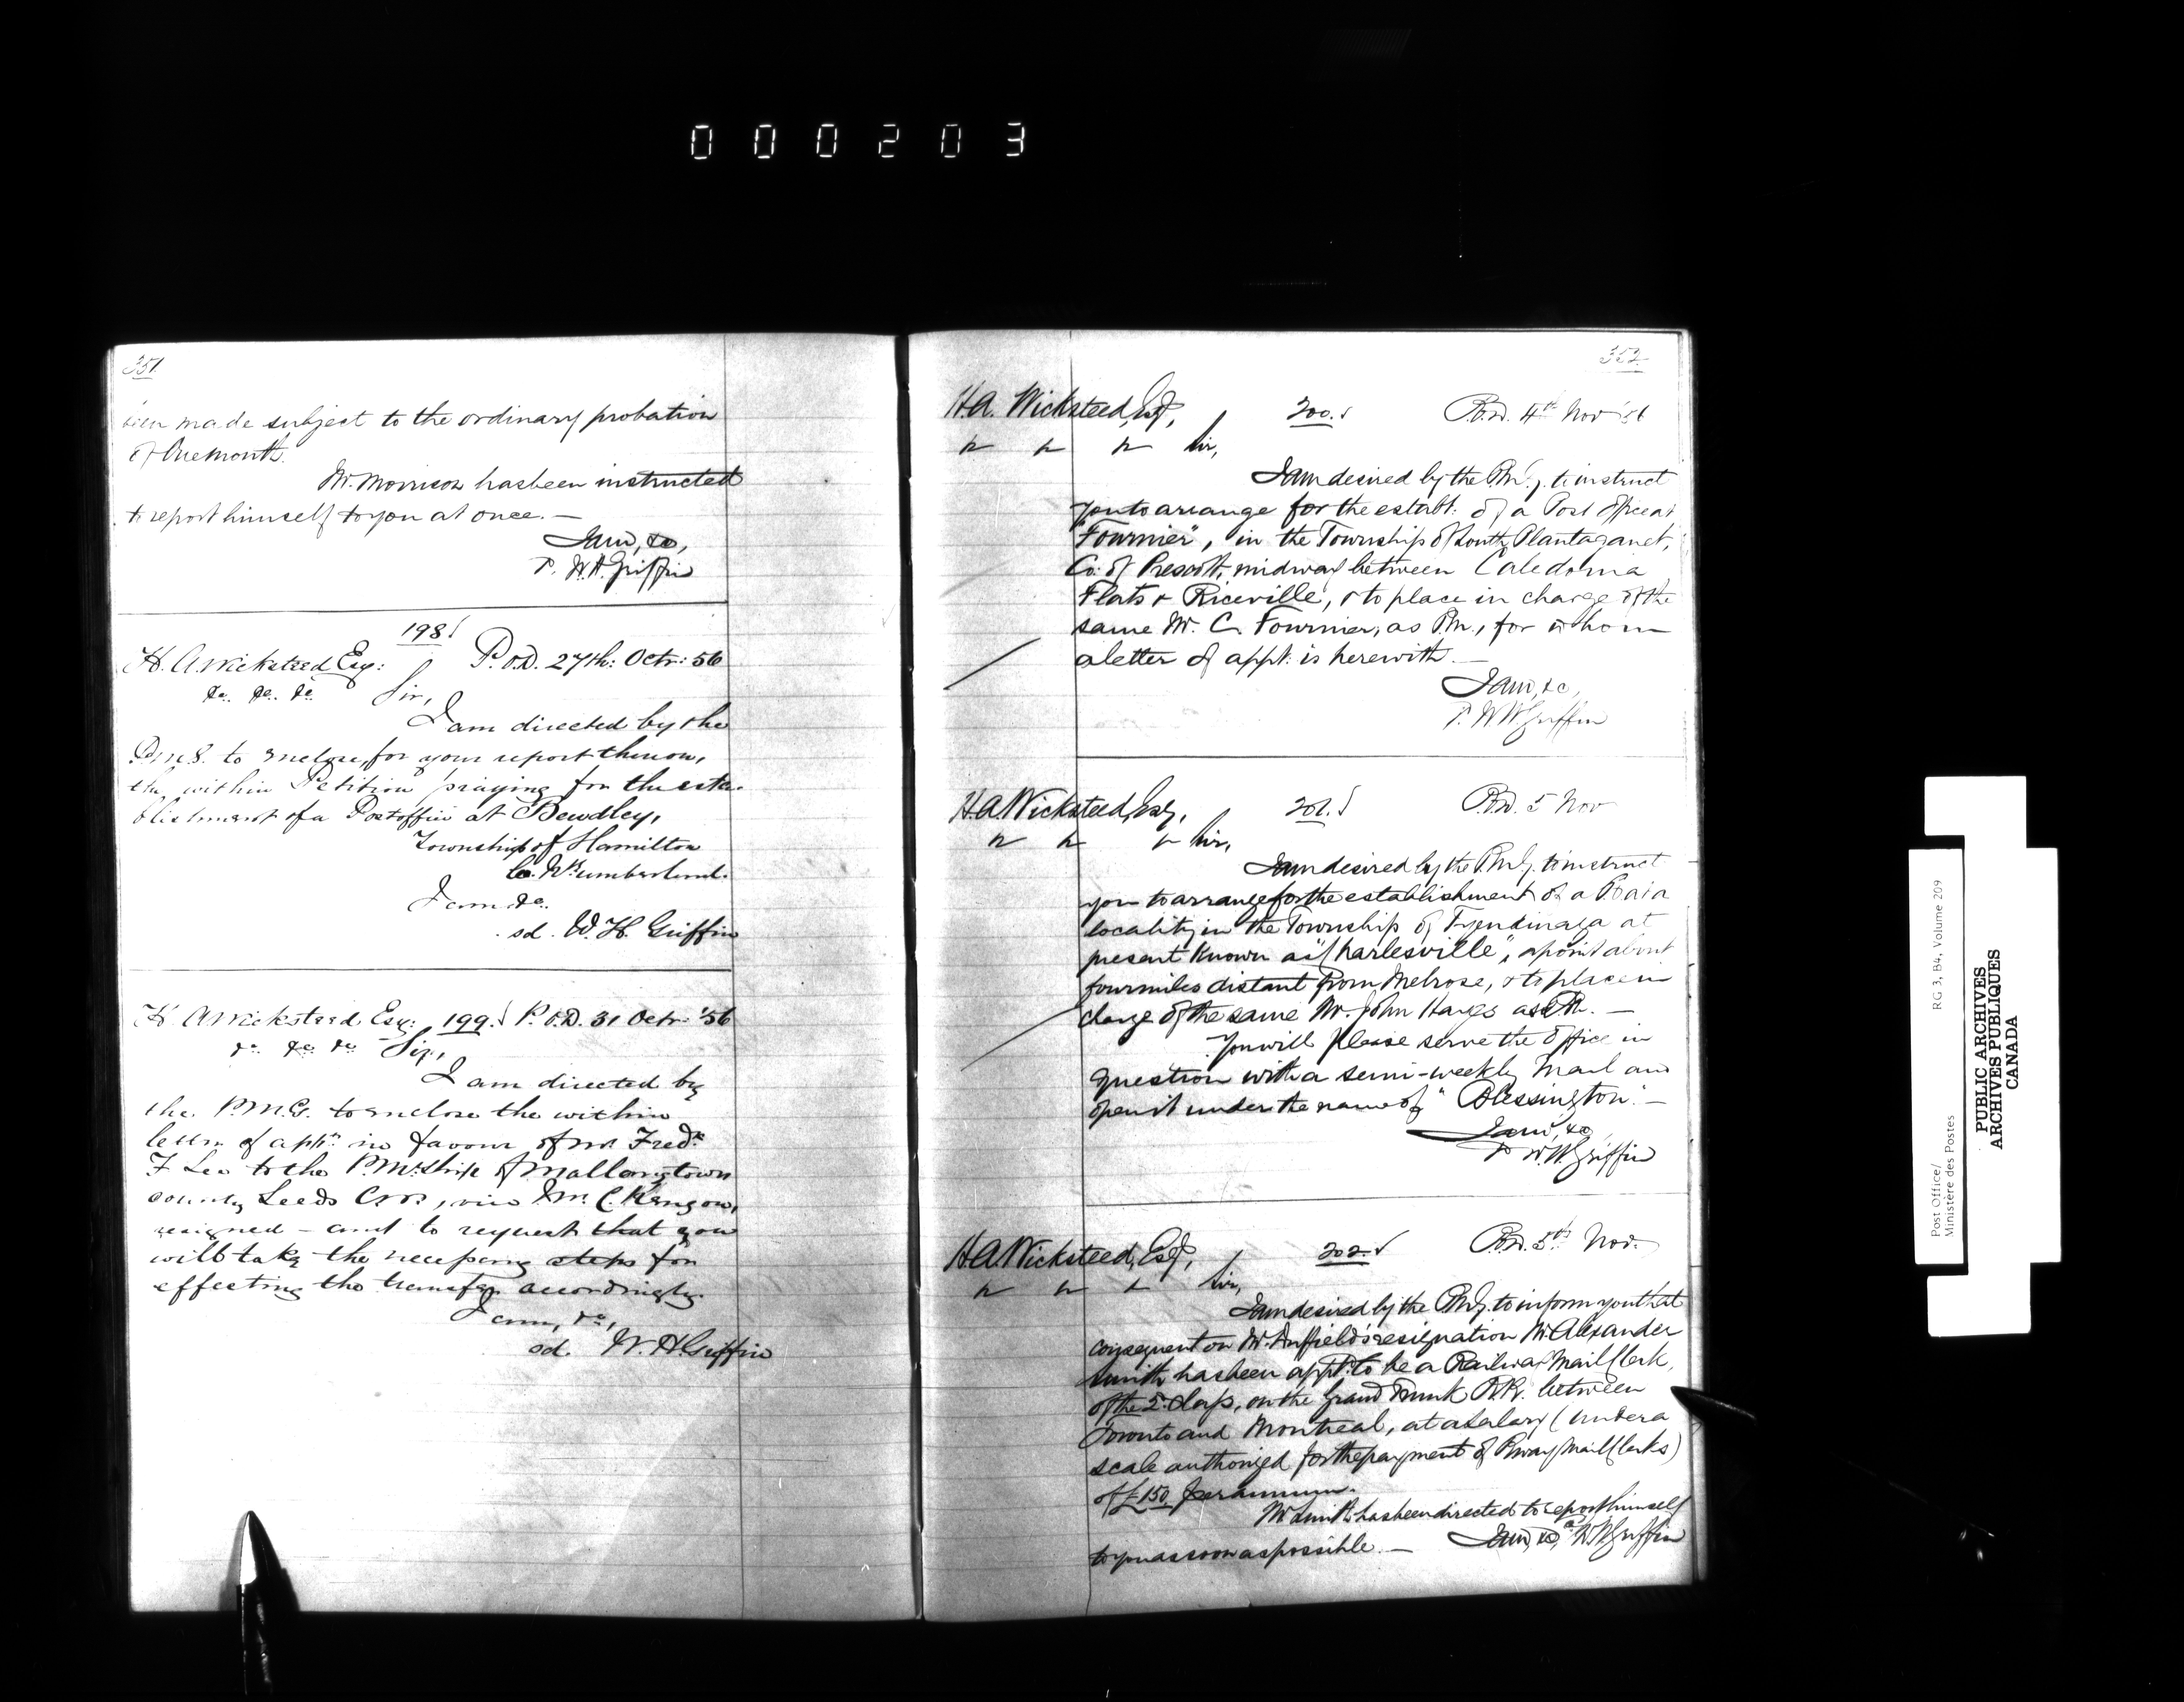 000203
351
been made subject to the ordinary probation
of One month.
Mr. Morrison has been instructed
to report himself to you at once. —
I am, &c,
W. H. Griffin
198
H. A. Wicksteed Esq: P.O.D. 27th: Octr: 56
&c. &c. &c Sir,
I am directed by the
P.M.G. to enclose, for your report thereon,
the within Petition praying for the esta-
blishment of a Postoffice at Bewdley,
Township of Hamilton
Co. Nthumberland.
I am &c.
sd. W. H. Griffin
H. A. Wicksteed Esq: 199. P.O.D. 31 Octr: '56
&c. &c. &c Sir,
I am directed by
the P.M.G. to enclose the within
letter of aptn in favour of Mr Fredk
F Lee to the P.M.ship of Mallorytown
county Leeds C.W., vice Mr. C.
resigned – and to request that you
will take the necessary steps for
effecting the transfer accordingly.
I am, &c,
sd. W. H. Griffin
352
H.A. Wicksteed, Esq, 200. P.O.D. 4th Nov 56
" " " Sir,
I am desired by the P.M.G. to instruct
you to arrange for the establt: of a Post Office at
"Fournier", in the Township of South Plantaganet,
Co: of Prescott, midway between Caledonia
Flats & Riceville, & to place in charge of the
same Mr. C. Fournier, as P.M., for whom
a letter of appt: is herewith. —
I am, &c,
W H Griffin
H.A. Wicksteed, Esq, 201. P.O.D. 5 Nov
" " " Sir,
I am desired by the P.M.G. to instruct
you to arrange for the establishment of a P.O. in a
locality in the Township of Tyendinaga at
present known as "Charlesville", a point about
four miles distant from Melrose, & to place in
charge of the same Mr. John Hayes as P.M. —
You will please serve the office in
question with a semi-weekly Mail and
open it under the name of "Blessington". —
I am, &c
W. H. Griffin
H.A. Wicksteed, Esq, 202. P.O.D. 5th Nov.
" " " Sir,
I am desired by the P.M.G. to inform you that
consequent on Mr. resignation Mr. Alexander
Smith has been appt: to be a Railway Mail Clerk,
of the 2d: Class, on the Grand Trunk R.R. between
Toronto and Montreal, at a Salary (under a
scale authorized for the payment of Rway Mail Clerks)
of £150 per annum.
Mr Smith has been directed to report himself
to you as soon as possible. — I am, &c, W H Griffin
Post Office/
Ministère des Postes
RG 3, B4, Volume 209
PUBLIC ARCHIVES
ARCHIVES PUBLIQUES
CANADA